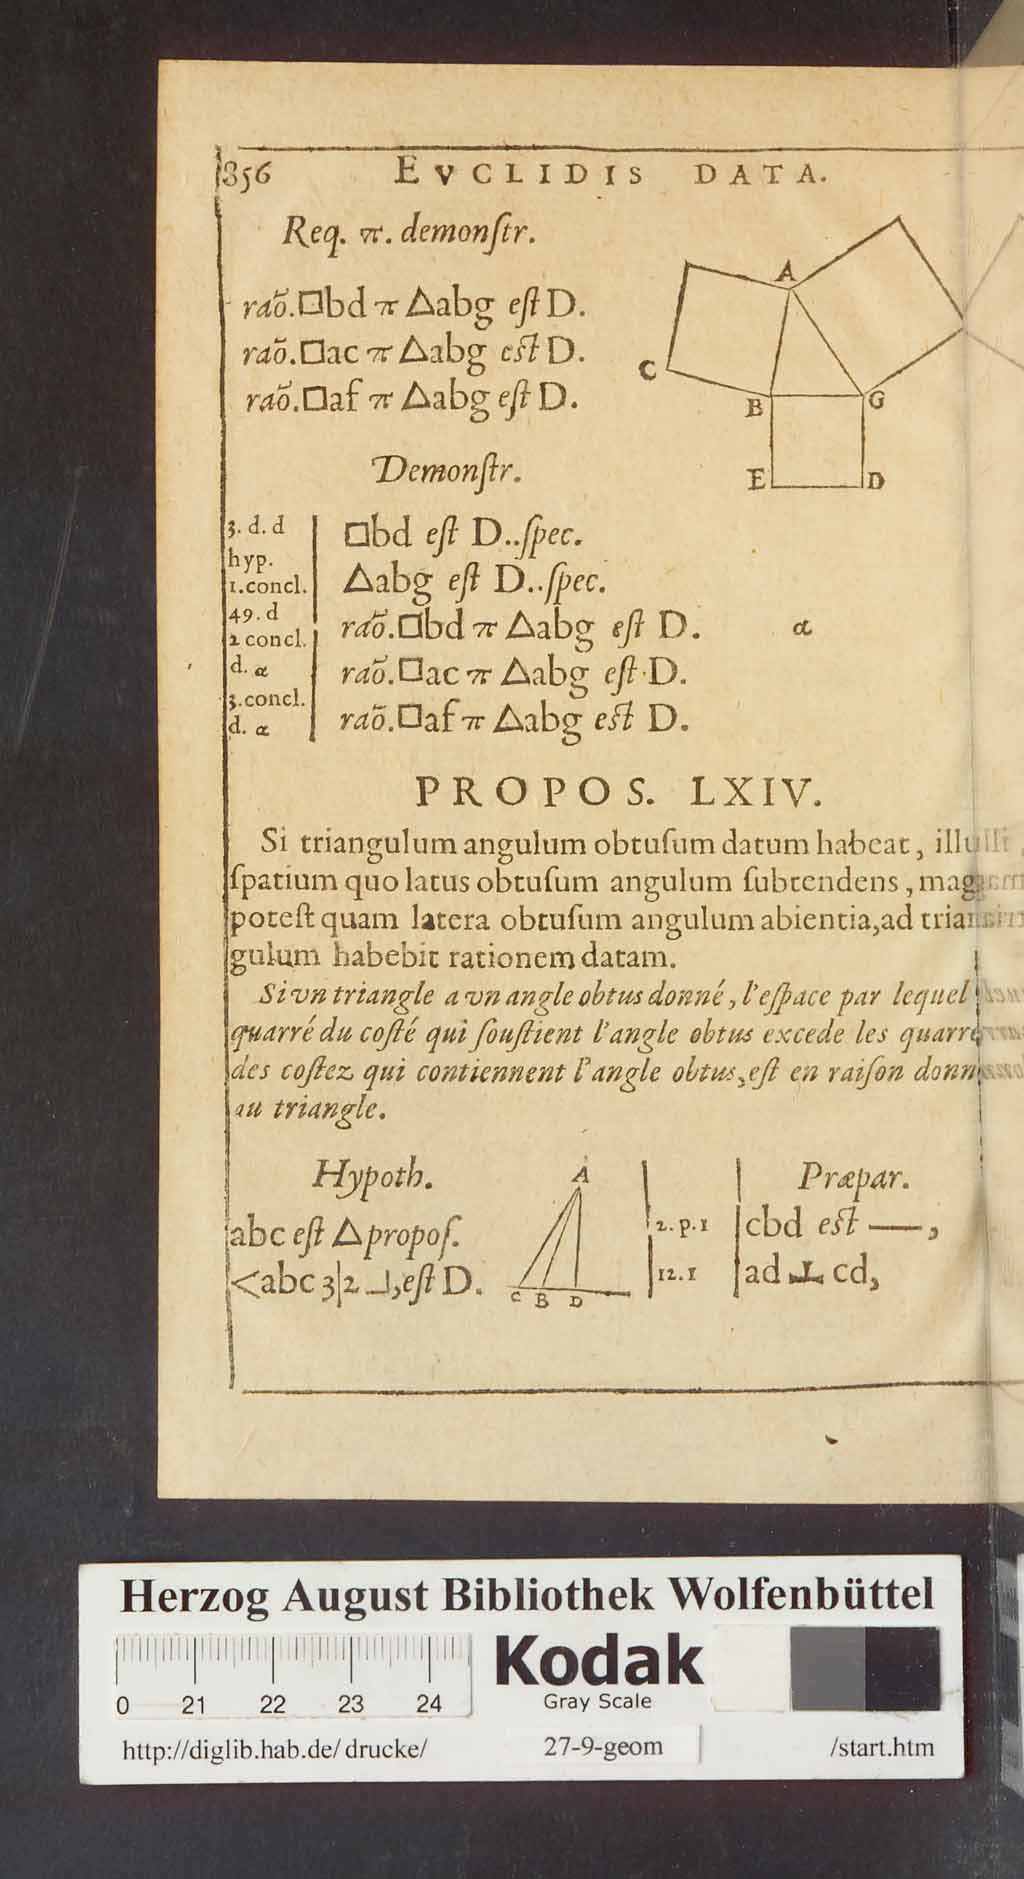 856 EVCLIDIS DATA.
Req. π. demonſtr.
raõ.□bd π △abg eſt D.
raõ.□ac π △abg eſt D.
raõ.□af π △abg eſt D.
A
C
B
G
E
D
Demonſtr.
3. d. d
hyp.
1.concl.
49. d
2 concl.
d. α
3.concl.
d. α
□bd eſt D..ſpec.
△abg eſt D..ſpec.
raõ.□bd π △abg eſt D. α
raõ.□ac π △abg eſt D.
raõ.□af π △abg eſt D.
PROPOS. LXIV.
Si triangulum angulum obtuſum datum habeat, illu
ſpatium quo latus obtuſum angulum ſubtendens, mag
poteſt quam latera obtuſum angulum abientia,ad trian
gulum habebit rationem datam.
Si vn triangle a vn angle obtus donné, l'eſpace par lequel
quarré du coſté qui ſouſtient l'angle obtus excede les quarre
des coſtez qui contiennent l'angle obtus,eſt en raiſon donn
au triangle.
Hypoth.
abc eſt △ propoſ.
<abc 3|2 ⅃,eſt D.
A
C B D
Præpar.
2. p. 1 cbd eſt —,
12. 1 ad ⊥ cd,
Herzog August Bibliothek Wolfenbüttel
0 21 22 23 24
Kodak
Gray Scale
http://diglib.hab.de/drucke/ 27-9-geom /start.htm